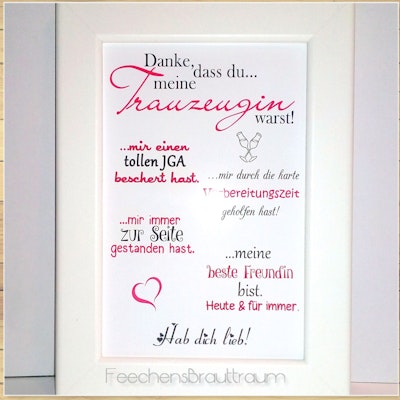 Danke,
dass du...
meine
Trauzeugin
warst!
...mir einen
tollen JGA
beschert hast.
...mir durch die harte
Vorbereitungszeit
geholfen hast!
...mir immer
zur Seite
gestanden hast.
...meine
beste Freundin
bist.
Heute & für immer.
Hab dich lieb!
FeechensBrauttraum